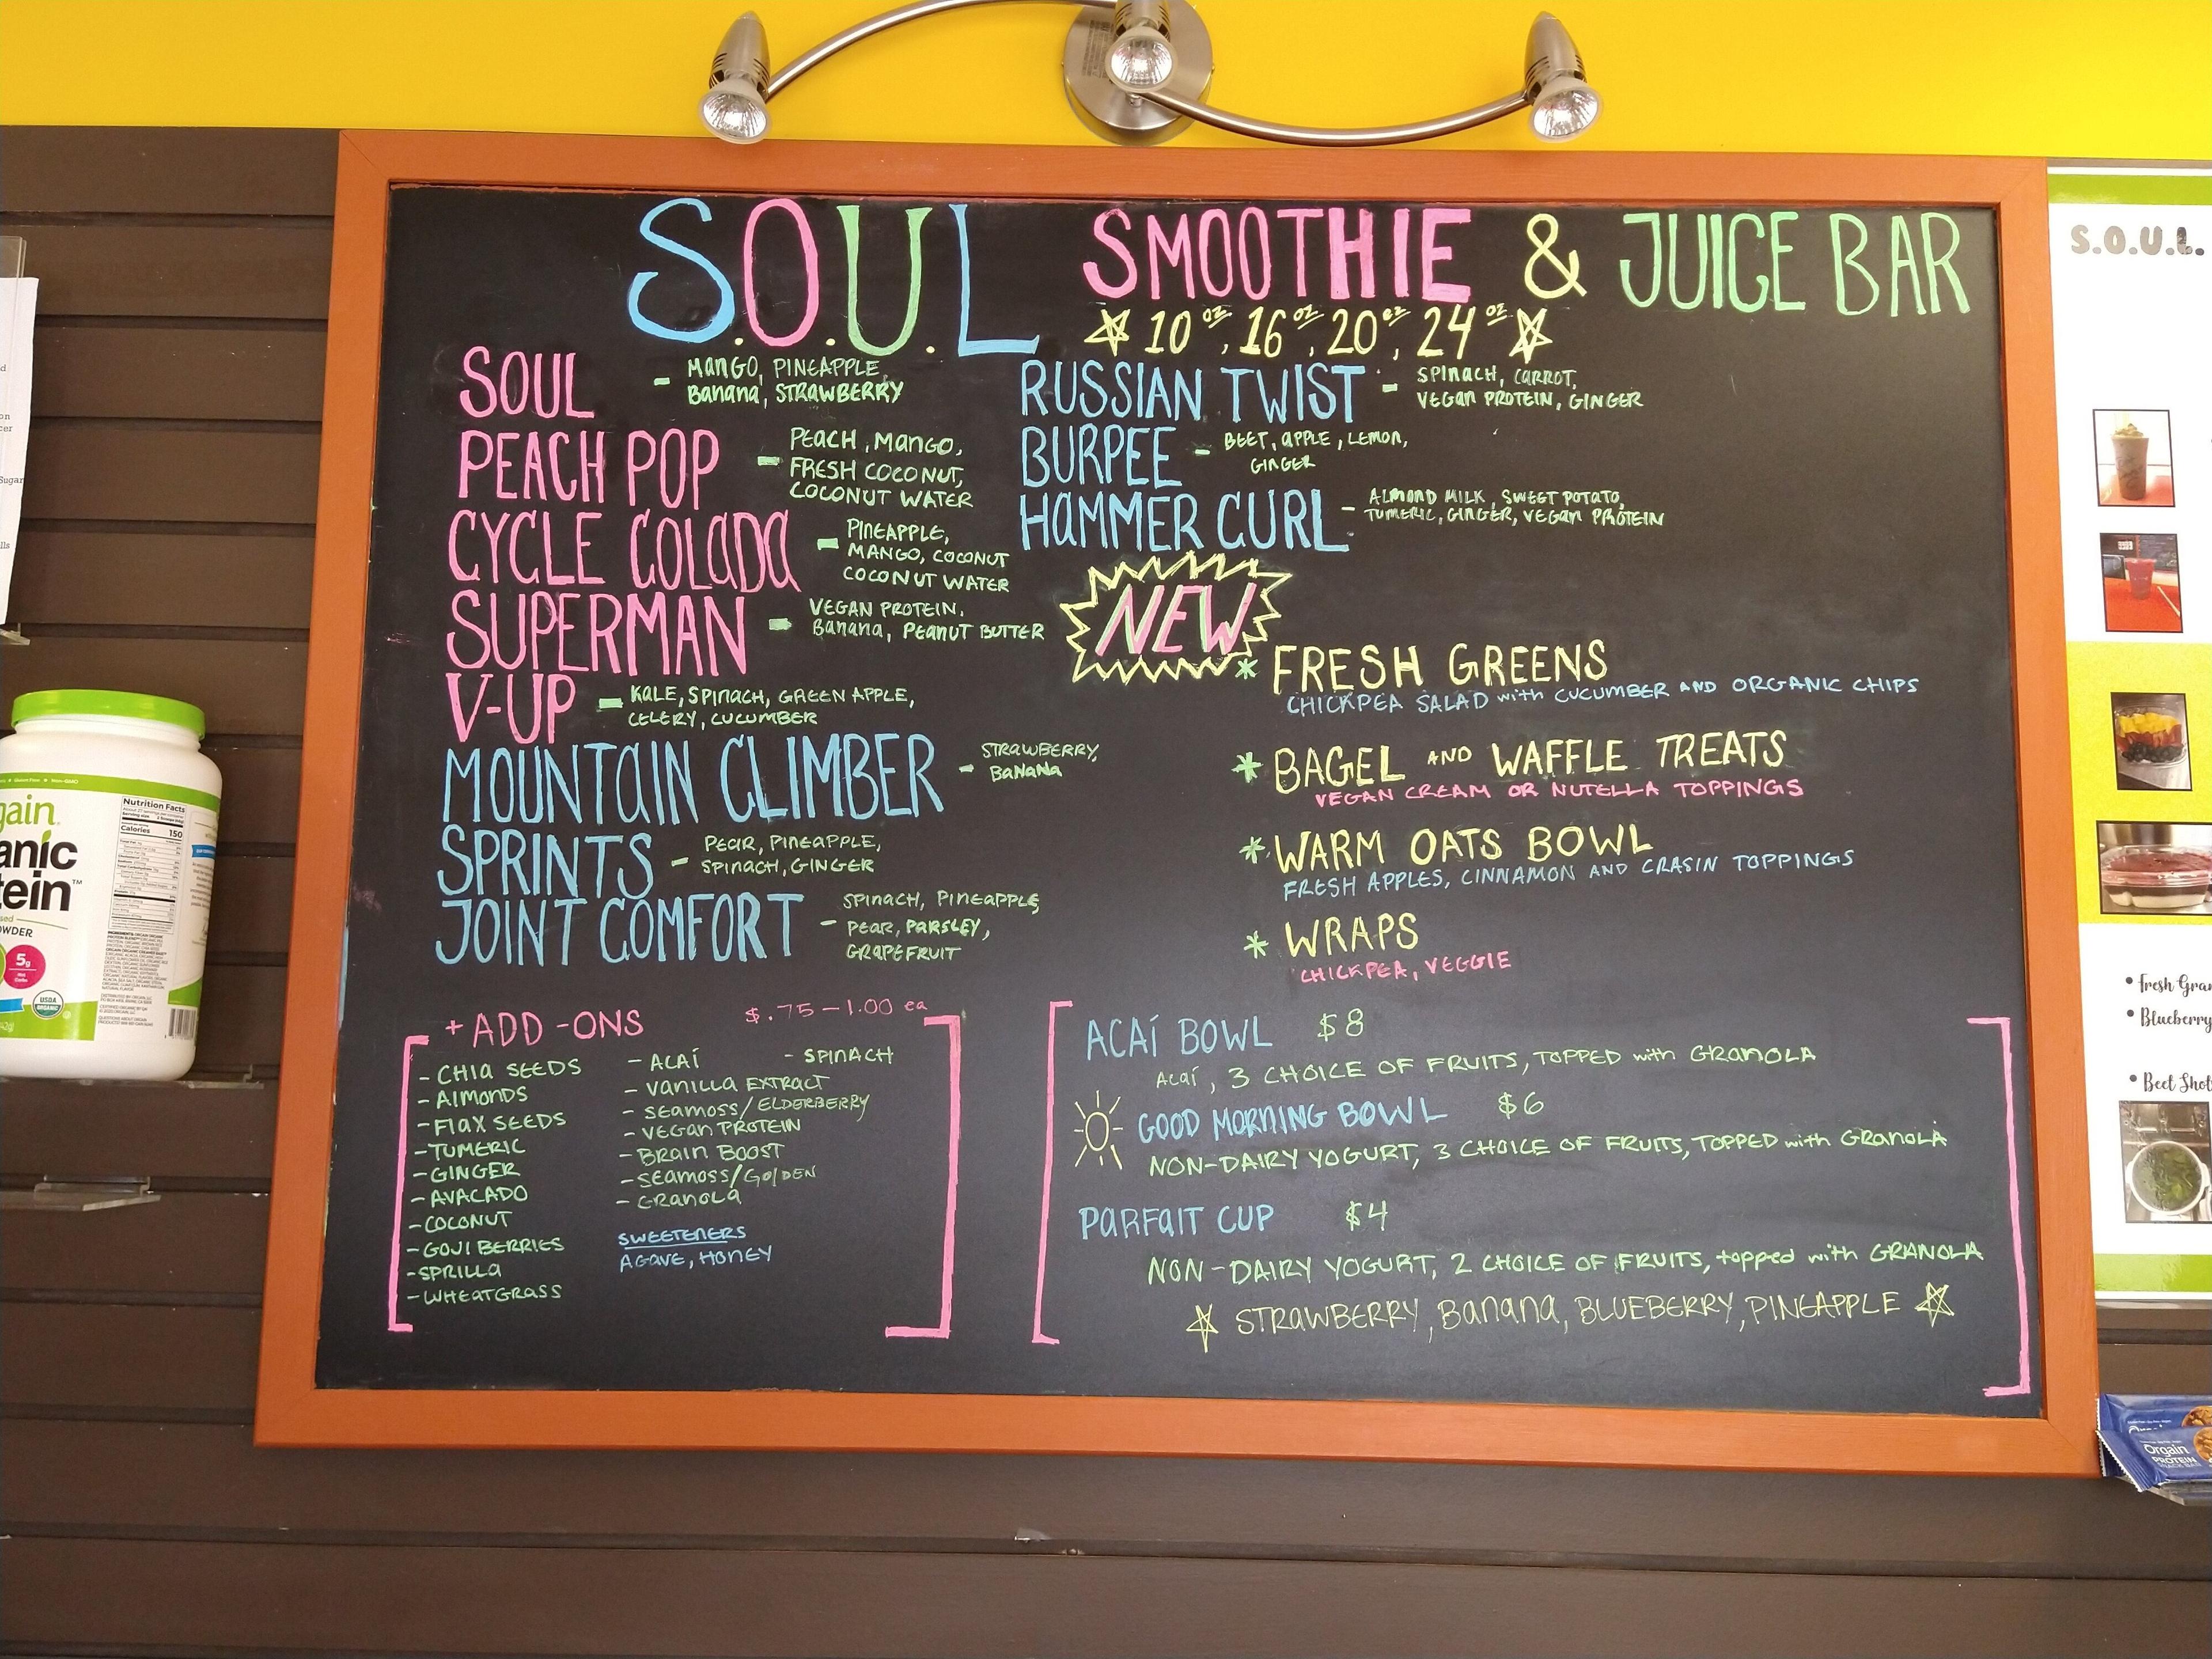 S.O.U.L SMOOTHIE & JUICE BAR
10oz, 16oz, 20oz, 24oz
SOUL - MANGO, PINEAPPLE,
BANANA, STRAWBERRY
PEACH POP - PEACH, MANGO,
FRESH COCONUT,
COCONUT WATER
CYCLE COLADA - PINEAPPLE,
MANGO, COCONUT
COCONUT WATER
SUPERMAN - VEGAN PROTEIN,
BANANA, PEANUT BUTTER
V-UP - KALE, SPINACH, GREEN APPLE,
CELERY, CUCUMBER
MOUNTAIN CLIMBER - STRAWBERRY,
BANANA
SPRINTS - PEAR, PINEAPPLE,
SPINACH, GINGER
JOINT COMFORT - SPINACH, PINEAPPLE,
PEAR, PARSLEY,
GRAPEFRUIT
RUSSIAN TWIST - SPINACH, CARROT,
VEGAN PROTEIN, GINGER
BURPEE - BEET, APPLE, LEMON,
GINGER
HAMMER CURL - ALMOND MILK, SWEET POTATO,
TUMERIC, GINGER, VEGAN PROTEIN
NEW
* FRESH GREENS
CHICKPEA SALAD with CUCUMBER AND ORGANIC CHIPS
* BAGEL AND WAFFLE TREATS
VEGAN CREAM OR NUTELLA TOPPINGS
* WARM OATS BOWL
FRESH APPLES, CINNAMON AND CRASIN TOPPINGS
* WRAPS
CHICKPEA, VEGGIE
+ ADD-ONS $.75-1.00 ea
- CHIA SEEDS
- ALMONDS
- FLAX SEEDS
- TUMERIC
- GINGER
- AVACADO
- COCONUT
- GOJI BERRIES
- SPRILLA
- WHEATGRASS
- ACAÍ - SPINACH
- VANILLA EXTRACT
- SEAMOSS/ELDERBERRY
- VEGAN PROTEIN
- BRAIN BOOST
- SEAMOSS/GOLDEN
- GRANOLA
SWEETENERS
AGAVE, HONEY
ACAÍ BOWL $8
ACAÍ, 3 CHOICE OF FRUITS, TOPPED with GRANOLA
GOOD MORNING BOWL $6
NON-DAIRY YOGURT, 3 CHOICE OF FRUITS, TOPPED with GRANOLA
PARFAIT CUP $4
NON-DAIRY YOGURT, 2 CHOICE OF FRUITS, topped with GRANOLA
STRAWBERRY, BANANA, BLUEBERRY, PINEAPPLE
Nutrition Facts
Calories 150
5g
USDA
ORGANIC
S.O.U.L.
• Fresh
• Blueberry
• Beet
Orgain
PROTEIN